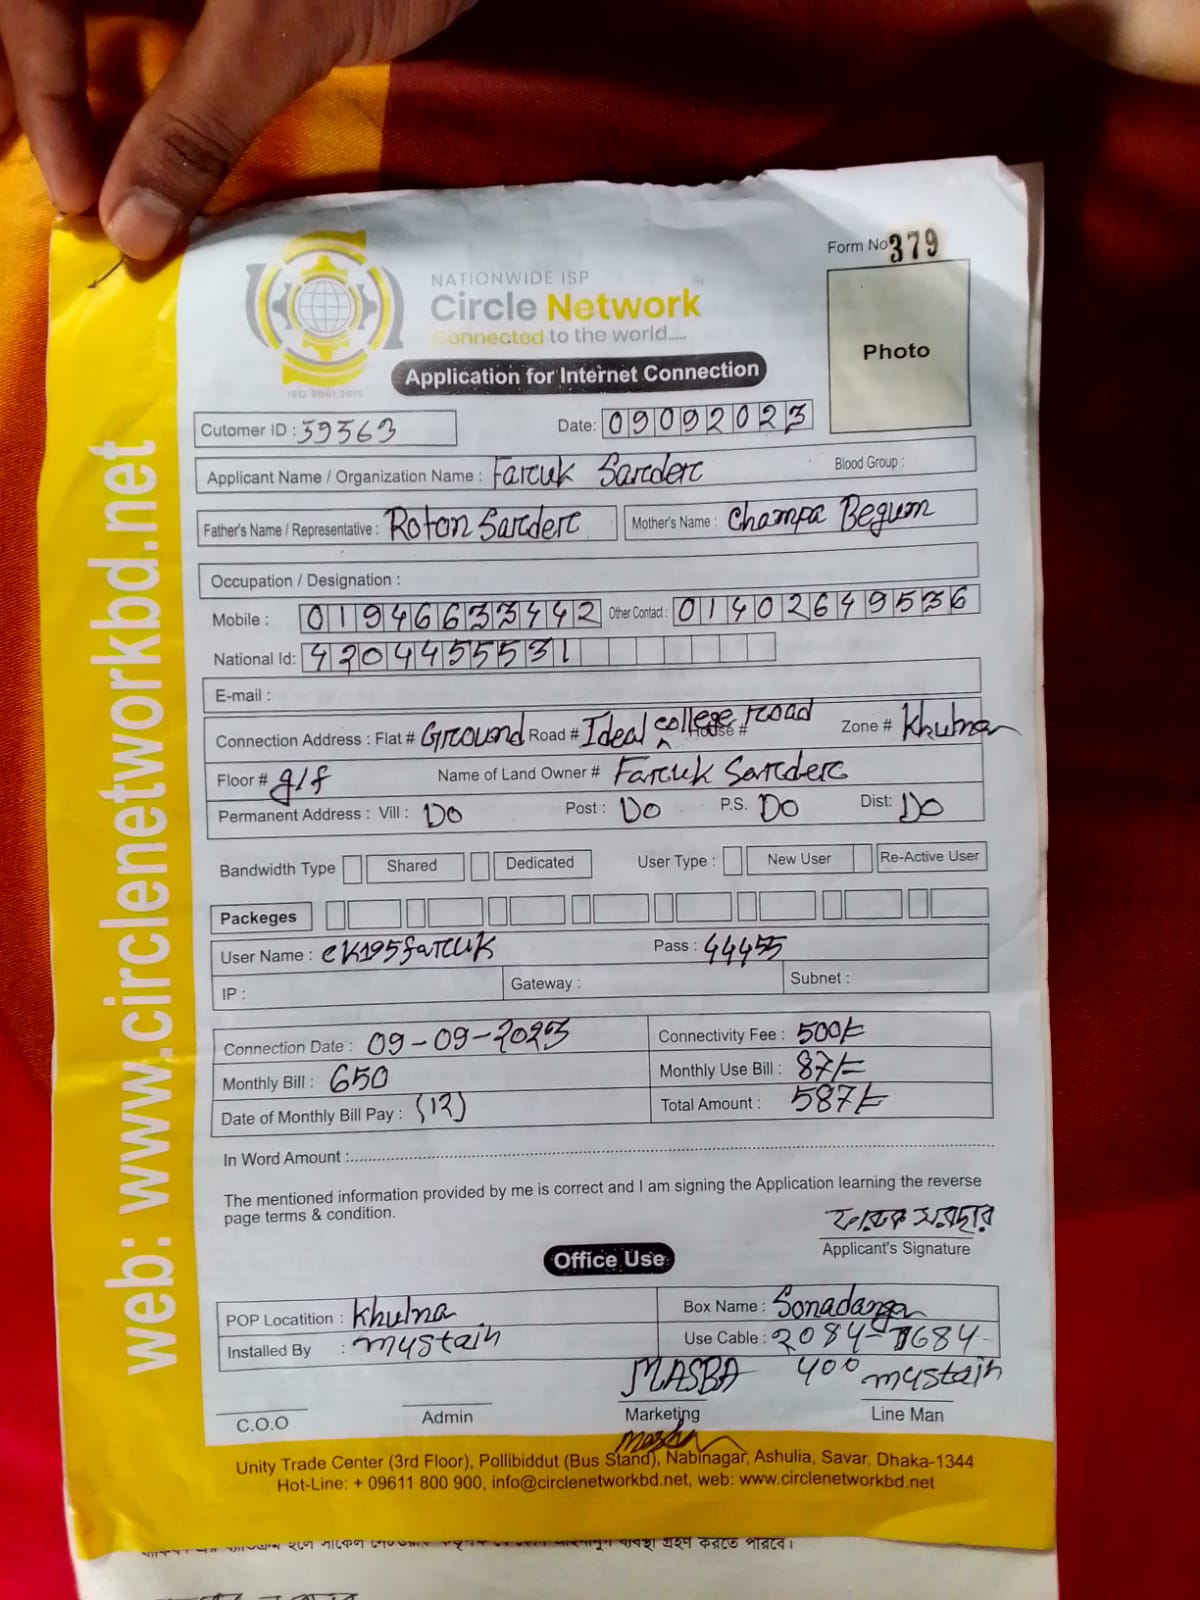 Form No 379
NATIONWIDE ISP
Circle Network
Connected to the world.....
ISO 9001:2015
Photo
Application for Internet Connection
Cutomer ID : 59563
Date: 09092023
Applicant Name / Organization Name : Faruk Sarder
Blood Group :
Father's Name / Representative : Roton Sarder
Mother's Name : Champa Begum
Occupation / Designation :
Mobile : 01946633442 Other Contact : 01402649536
National Id: 4204455531
E-mail :
Connection Address : Flat # Ground Road # Ideal college road House # Zone # Khulna
Floor # g/f Name of Land Owner # Faruk Sarder
Permanent Address : Vill : Do Post : Do P.S. Do Dist: Do
Bandwidth Type Shared Dedicated User Type : New User Re-Active User
Packeges
User Name : ck195faruk Pass : 44455
IP : Gateway : Subnet :
Connection Date : 09-09-2023 Connectivity Fee : 500/=
Monthly Bill : 650 Monthly Use Bill : 87/=
Date of Monthly Bill Pay : (12) Total Amount : 587/=
In Word Amount :
The mentioned information provided by me is correct and I am signing the Application learning the reverse
page terms & condition.
ফারুক সরদার
Applicant's Signature
Office Use
POP Locatition : Khulna Box Name : Sonadanga
Installed By : mystain Use Cable : 2084-1684
MASBA 400 mystain
C.O.O Admin Marketing Line Man
Unity Trade Center (3rd Floor), Pollibiddut (Bus Stand), Nabinagar, Ashulia, Savar, Dhaka-1344
Hot-Line: + 09611 800 900, info@circlenetworkbd.net, web: www.circlenetworkbd.net
web: www.circlenetworkbd.net
ব্যবস্থা গ্রহণ করতে পারবে।